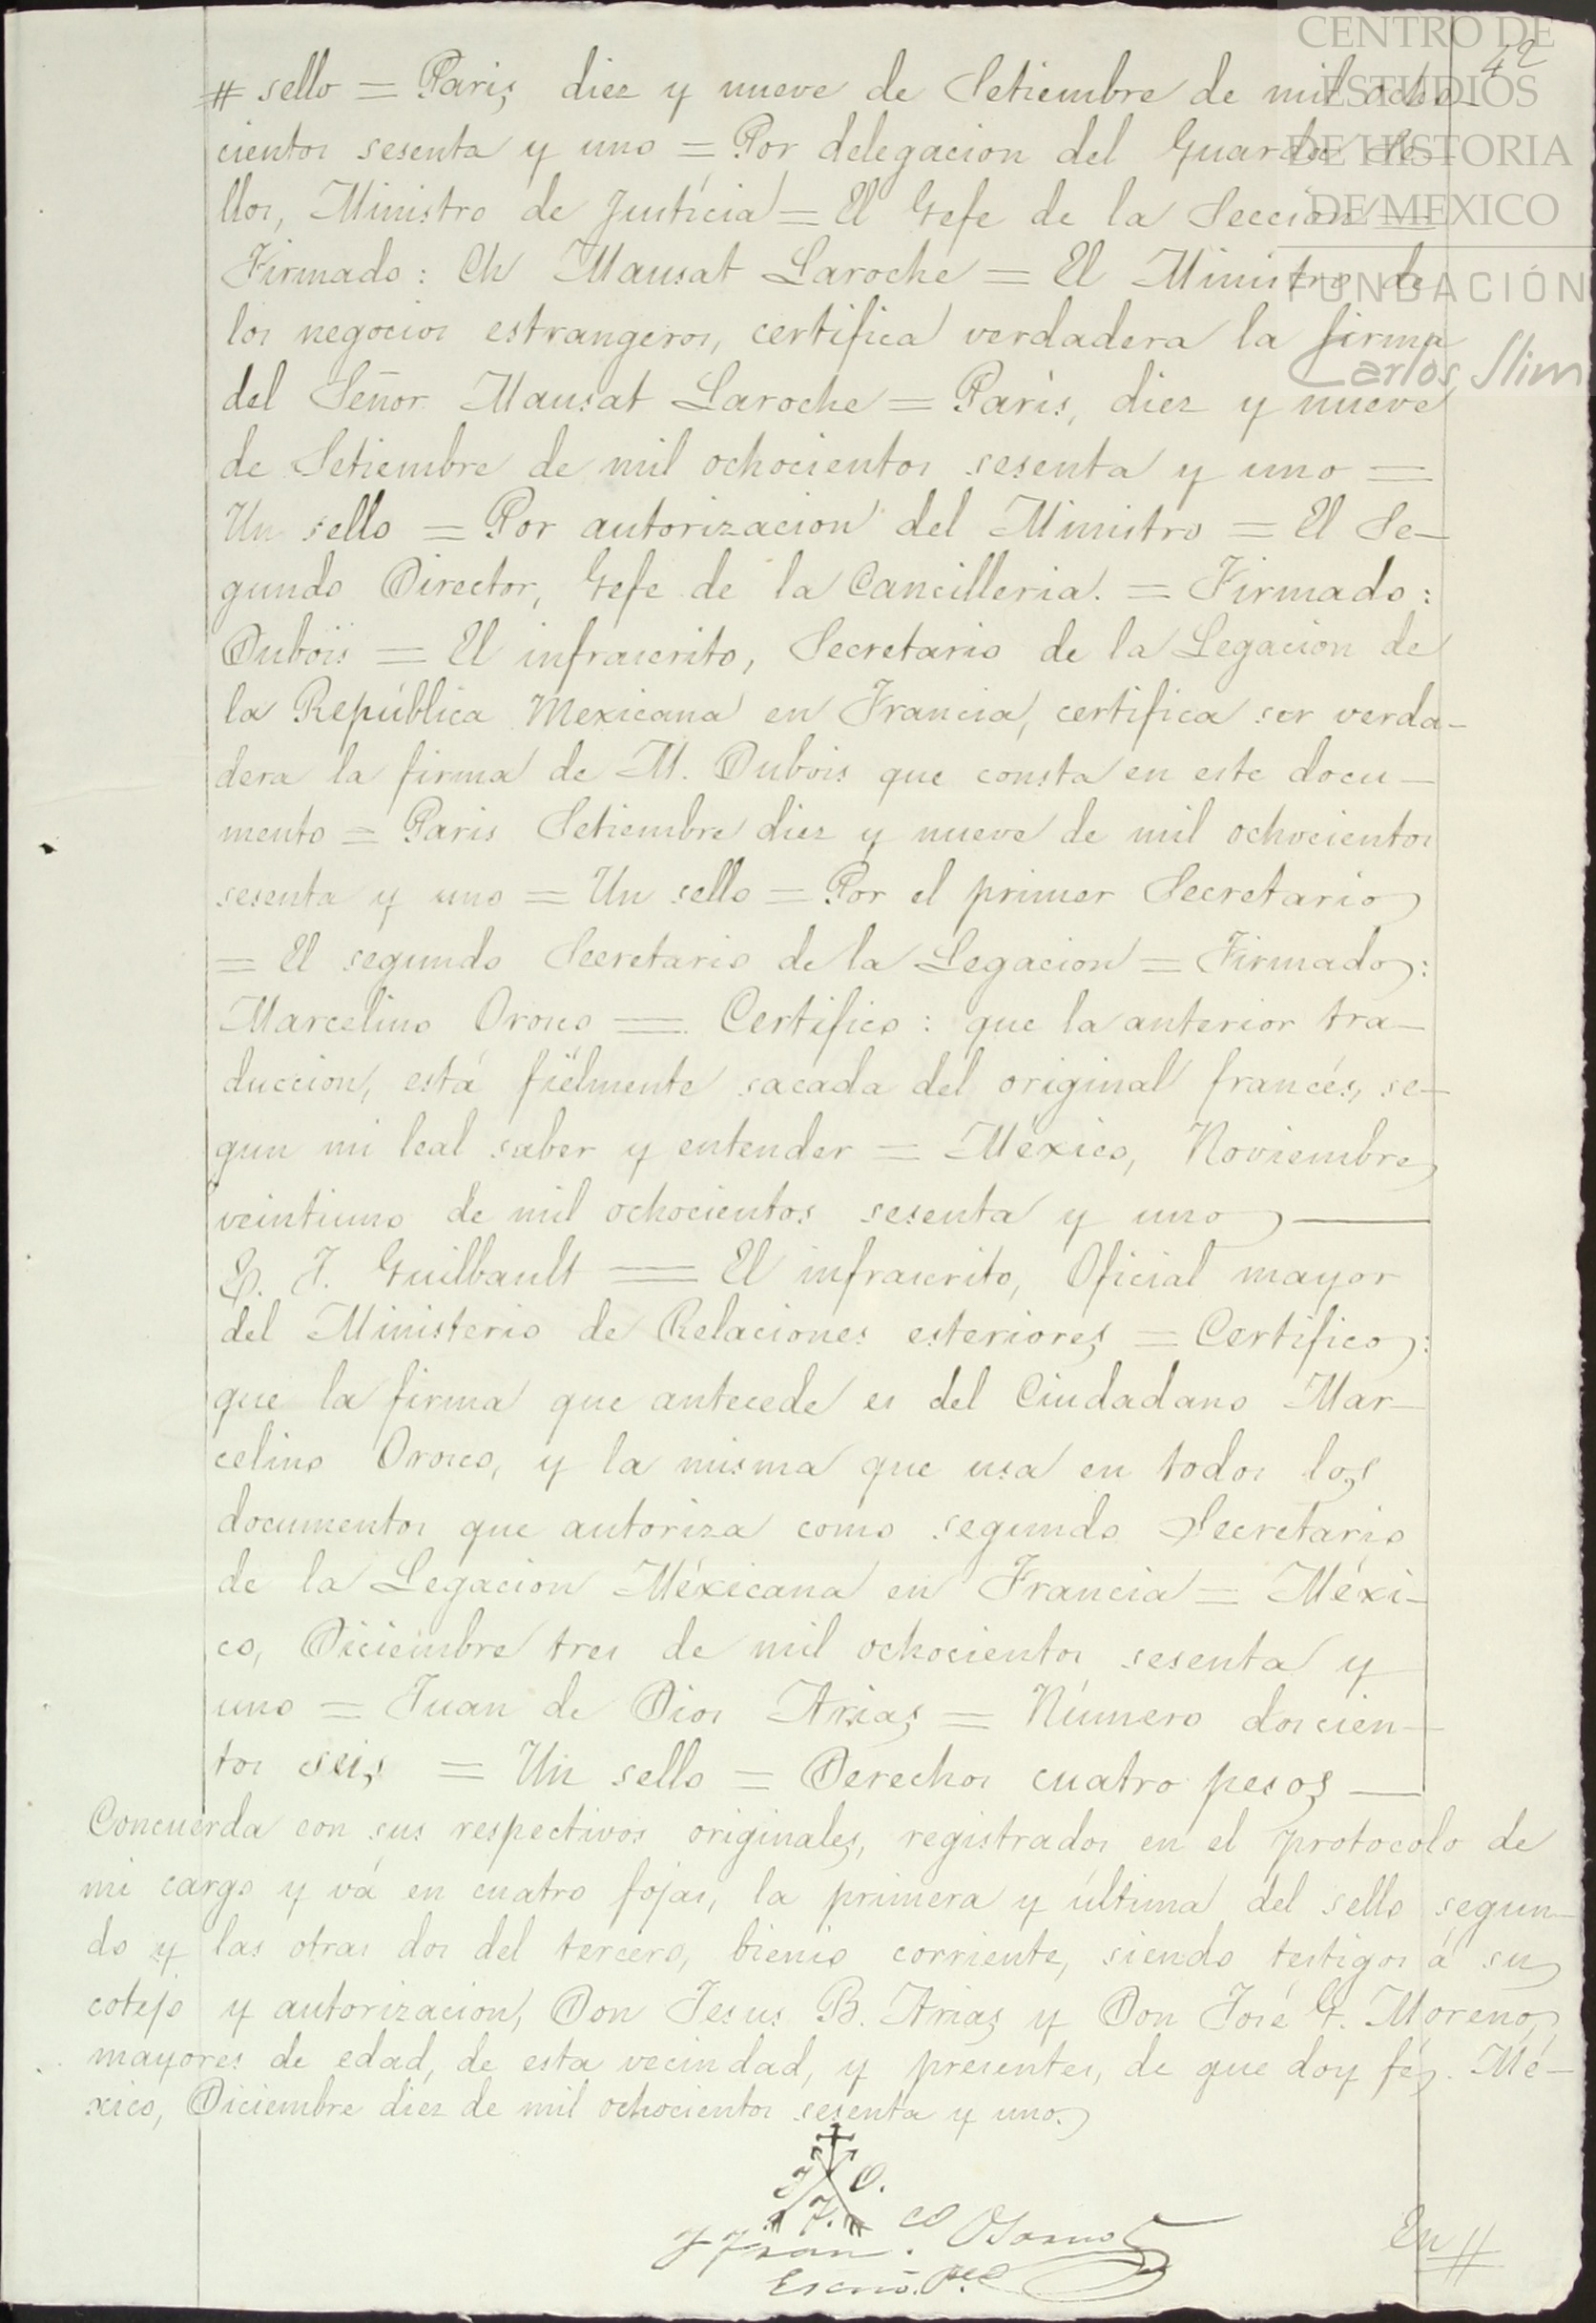 CENTRO DE
ESTUDIOS
DE HISTORIA
DE MEXICO
FUNDACIÓN
Carlos Slim
42
# sello = Paris, diez y nueve de Setiembre de mil ocho-
cientos sesenta y uno = Por delegacion del Guarda Se-
llos, Ministro de Justicia = El Gefe de la Seccion =
Firmado: Ch Mausat Laroche = El Ministro de
los negocios estrangeros, certifica verdadera la firma
del Señor Mausat Laroche = Paris, diez y nueve
de Setiembre de mil ochocientos sesenta y uno =
Un sello = Por autorizacion del Ministro = El Se-
gundo Director, Gefe de la Cancilleria. = Firmado:
Dubois = El infrascrito, Secretario de la Legacion de
la República Mexicana en Francia, certifica ser verda-
dera la firma de M. Dubois que consta en este docu-
mento = Paris Setiembre diez y nueve de mil ochocientos
sesenta y uno = Un sello = Por el primer Secretario
= El segundo Secretario de la Legacion = Firmado:
Marcelino Orosco = Certifico: que la anterior tra-
duccion, está fiëlmente sacada del original francés, se-
gun mi leal saber y entender = México, Noviembre
veintiuno de mil ochocientos sesenta y uno —
E. J. Guilbault = El infrascrito, Oficial mayor
del Ministerio de Relaciones esteriores = Certifico:
que la firma que antecede es del Ciudadano Mar-
celino Orosco, y la misma que usa en todos los
documentos que autoriza como segundo Secretario
de la Legacion Méxicana en Francia = Méxi-
co, Diciembre tres de mil ochocientos sesenta y
uno = Juan de Dios Arias = Número doscien-
tos seis = Un sello = Derechos cuatro pesos —
Concuerda con sus respectivos originales, registrados en el protocolo de
mi cargo y vá en cuatro fojas, la primera y última del sello segun-
do y las otras dos del tercero, bienio corriente, siendo testigos á su
cotejo y autorizacion, Don Jesus B. Arias y Don José G. Moreno,
mayores de edad, de esta vecindad, y presentes, de que doy fé. Mé-
xico, Diciembre diez de mil ochocientos sesenta y uno.
J O.
F.
Fran.co Osorno
En #